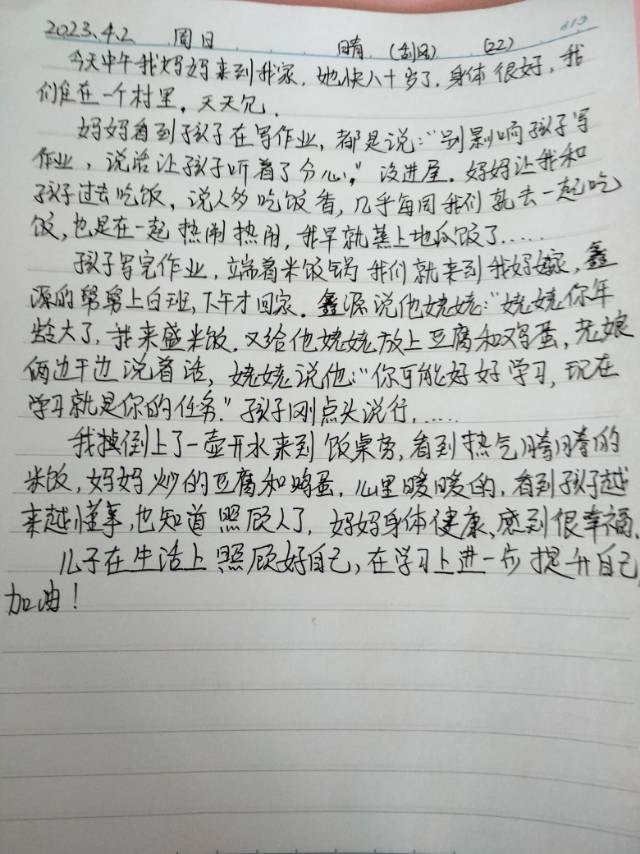 2023.4.2 周日 晴 (刮风) (22) 613
今天中午我妈妈来到我家,她快八十岁了,身体很好,我
们住在一个村里,天天见.
妈妈看到孩子在写作业,都是说:"别影响孩子写
作业,说话让孩子听着了分心。"没进屋.妈妈让我和
孩子过去吃饭,说人多吃饭香,几乎每周我们就去一起吃
饭,也是在一起热闹热闹,我早就蒸上地瓜饭了……
孩子写完作业,端着米饭锅我们就来到我妈家,鑫
源的舅舅上白班,下午才回家.鑫源说他姥姥:"姥姥你年
龄大了,我来盛米饭.又给他姥姥放上豆腐和鸡蛋,老娘
俩边干边说着话,姥姥说他:"你可能好好学习,现在
学习就是你的任务."孩子刚点头说行,……
我倒上了一壶开水来到饭桌旁,看到热气腾腾的
米饭,妈妈炒的豆腐和鸡蛋,心里暖暖的,看到孩子越
来越懂事,也知道照顾人了,妈妈身体健康,感到很幸福.
儿子在生活上照顾好自己,在学习上进一步提升自己
加油!